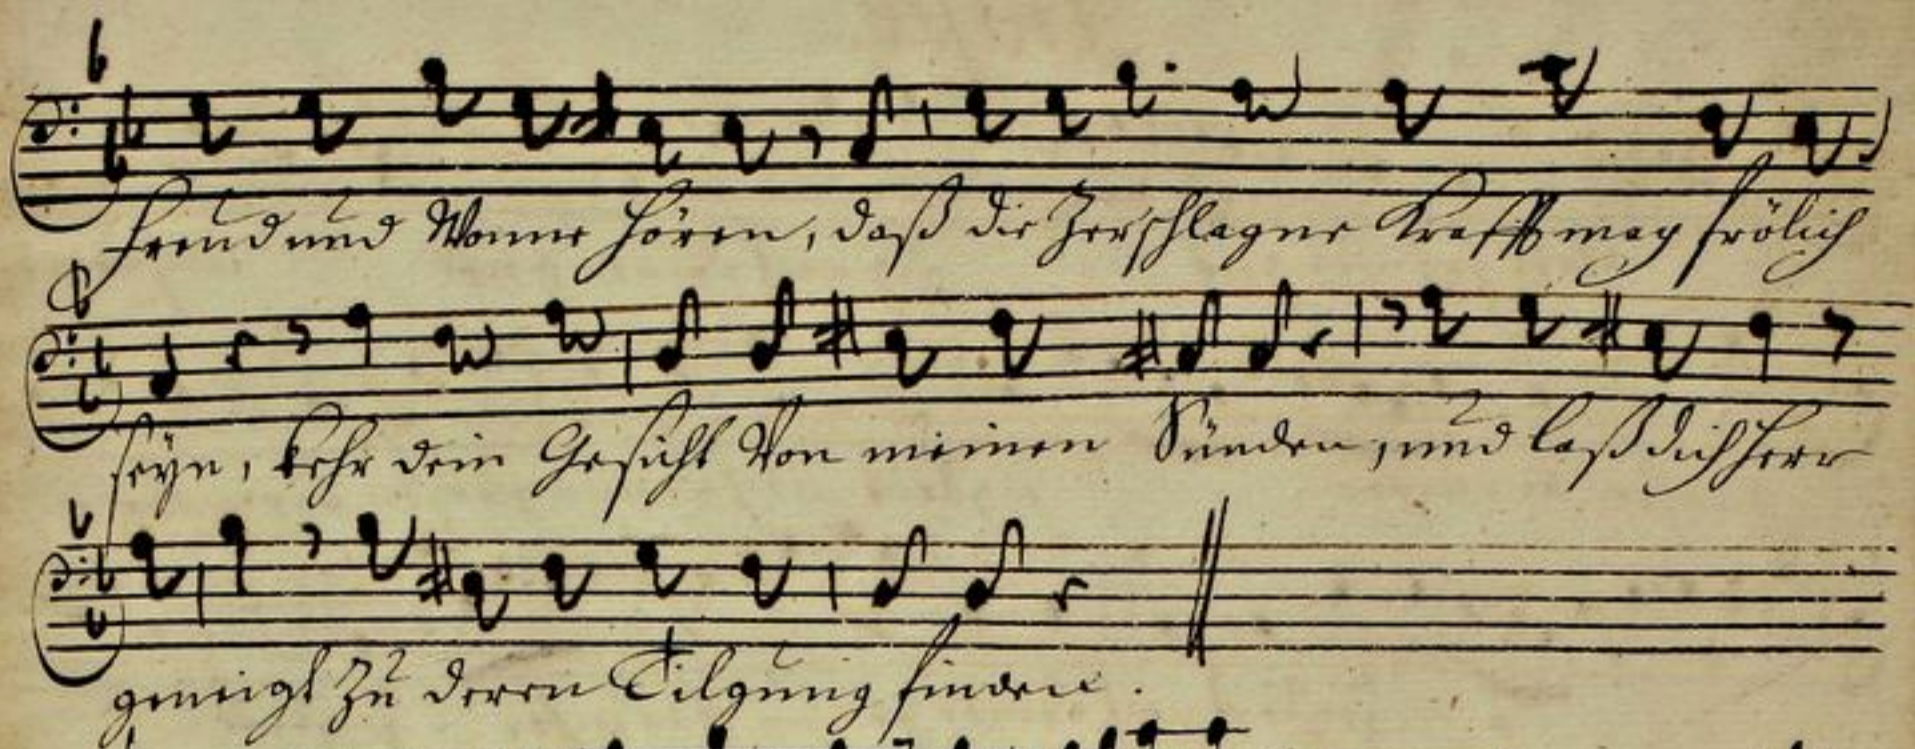 Freud und Wonne hören, daß die Zerschlagne Krafft mag frölich
seyn, kehr dein Gesicht Von meinen Sünden, und laß dich Herr
geneigt zu deren Tilgung finden.